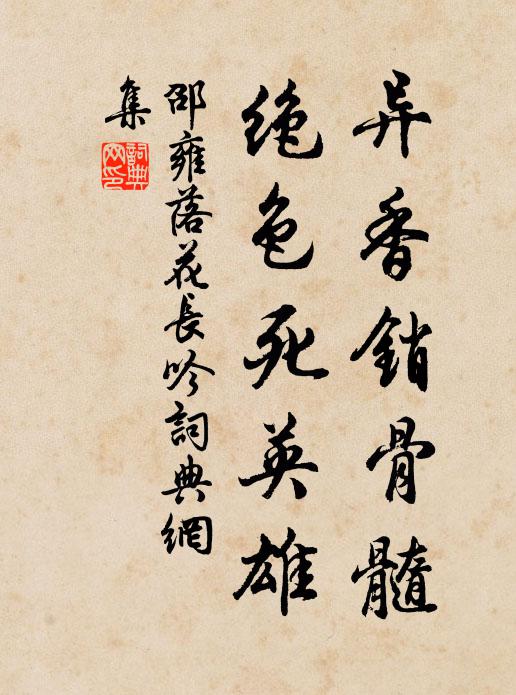 异香銷骨髓
绝色死英雄
邵雍落花長吟詞典網
集
詞典
网印